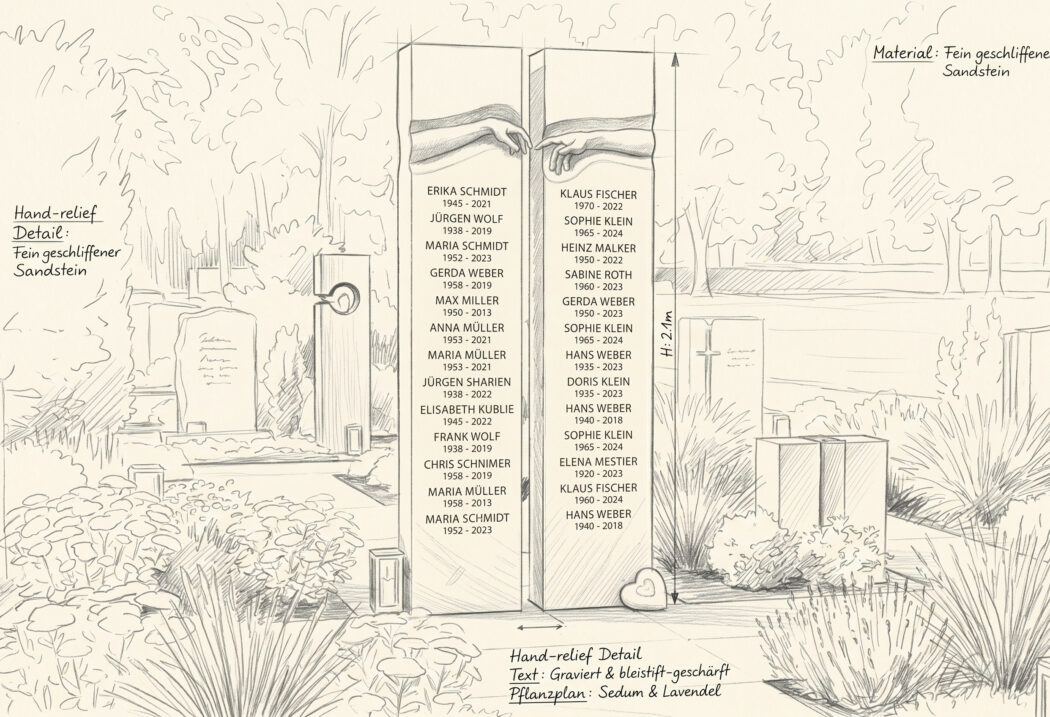 Material: Fein geschliffene
Sandstein
Hand-relief
Detail:
Fein geschliffener
Sandstein
ERIKA SCHMIDT
1945 - 2021
JÜRGEN WOLF
1938 - 2019
MARIA SCHMIDT
1952 - 2023
GERDA WEBER
1958 - 2019
MAX MILLER
1950 - 2013
ANNA MÜLLER
1953 - 2021
MARIA MÜLLER
1953 - 2021
JÜRGEN SHARIEN
1938 - 2022
ELISABETH KUBLIE
1945 - 2022
FRANK WOLF
1938 - 2019
CHRIS SCHNIMER
1958 - 2019
MARIA MÜLLER
1958 - 2013
MARIA SCHMIDT
1952 - 2023
KLAUS FISCHER
1970 - 2022
SOPHIE KLEIN
1965 - 2024
HEINZ MALKER
1950 - 2022
SABINE ROTH
1960 - 2023
GERDA WEBER
1950 - 2023
SOPHIE KLEIN
1965 - 2024
HANS WEBER
1935 - 2023
DORIS KLEIN
1935 - 2023
HANS WEBER
1940 - 2018
SOPHIE KLEIN
1965 - 2024
ELENA MESTIER
1920 - 2023
KLAUS FISCHER
1960 - 2024
HANS WEBER
1940 - 2018
H: 2.1m
Hand-relief Detail
Text: Graviert & bleistift-geschärft
Pflanzplan: Sedum & Lavendel